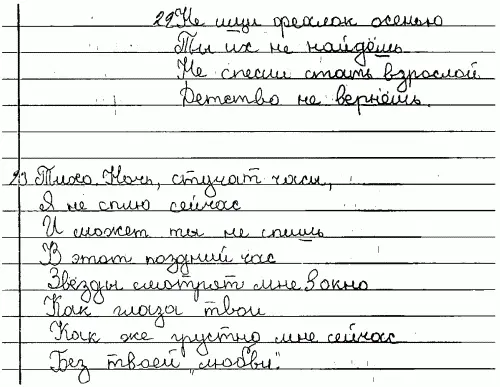 22. Не ищи фиалок осенью
Ты их не найдёшь
Не спеши стать взрослой
Детство не вернёшь.
23. Тихо. Ночь, стучат часы,
Я не сплю сейчас
И может ты не спишь
В этот поздний час
Звезды смотрят мне в окно
Как глаза твои
Как же грустно мне сейчас
Без твоей "любви".